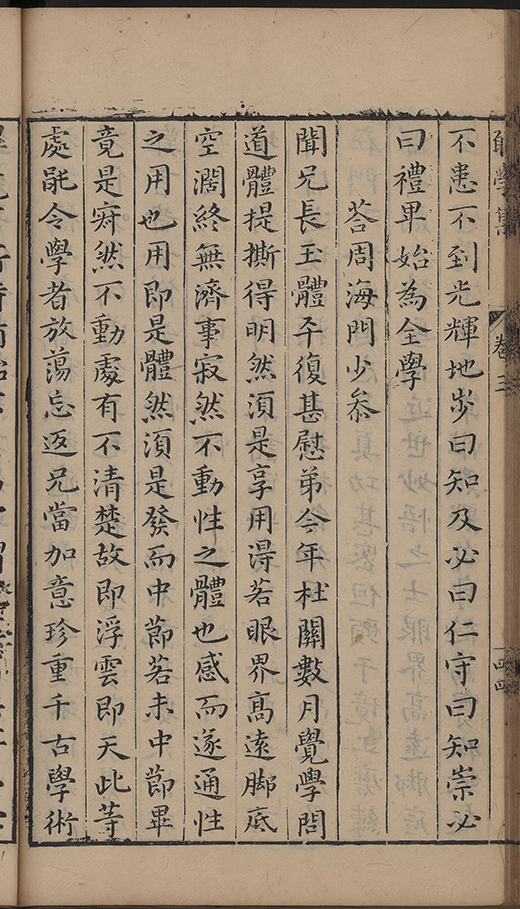 卷三
不患不到光輝地步曰知及必曰仁守曰知崇必
曰禮卑始為全學
荅周海門少叅
聞兄長玉體平復甚慰弟今年杜關數月覺學問
道體提撕得明然須是享用得若眼界高遠脚底
空濶終無濟事寂然不動性之體也感而遂通性
之用也用即是體然須是發而中節若未中節畢
竟是寂然不動處有不清楚故即浮雲即天此等
處能令學者放蕩忘返兄當加意珍重千古學術